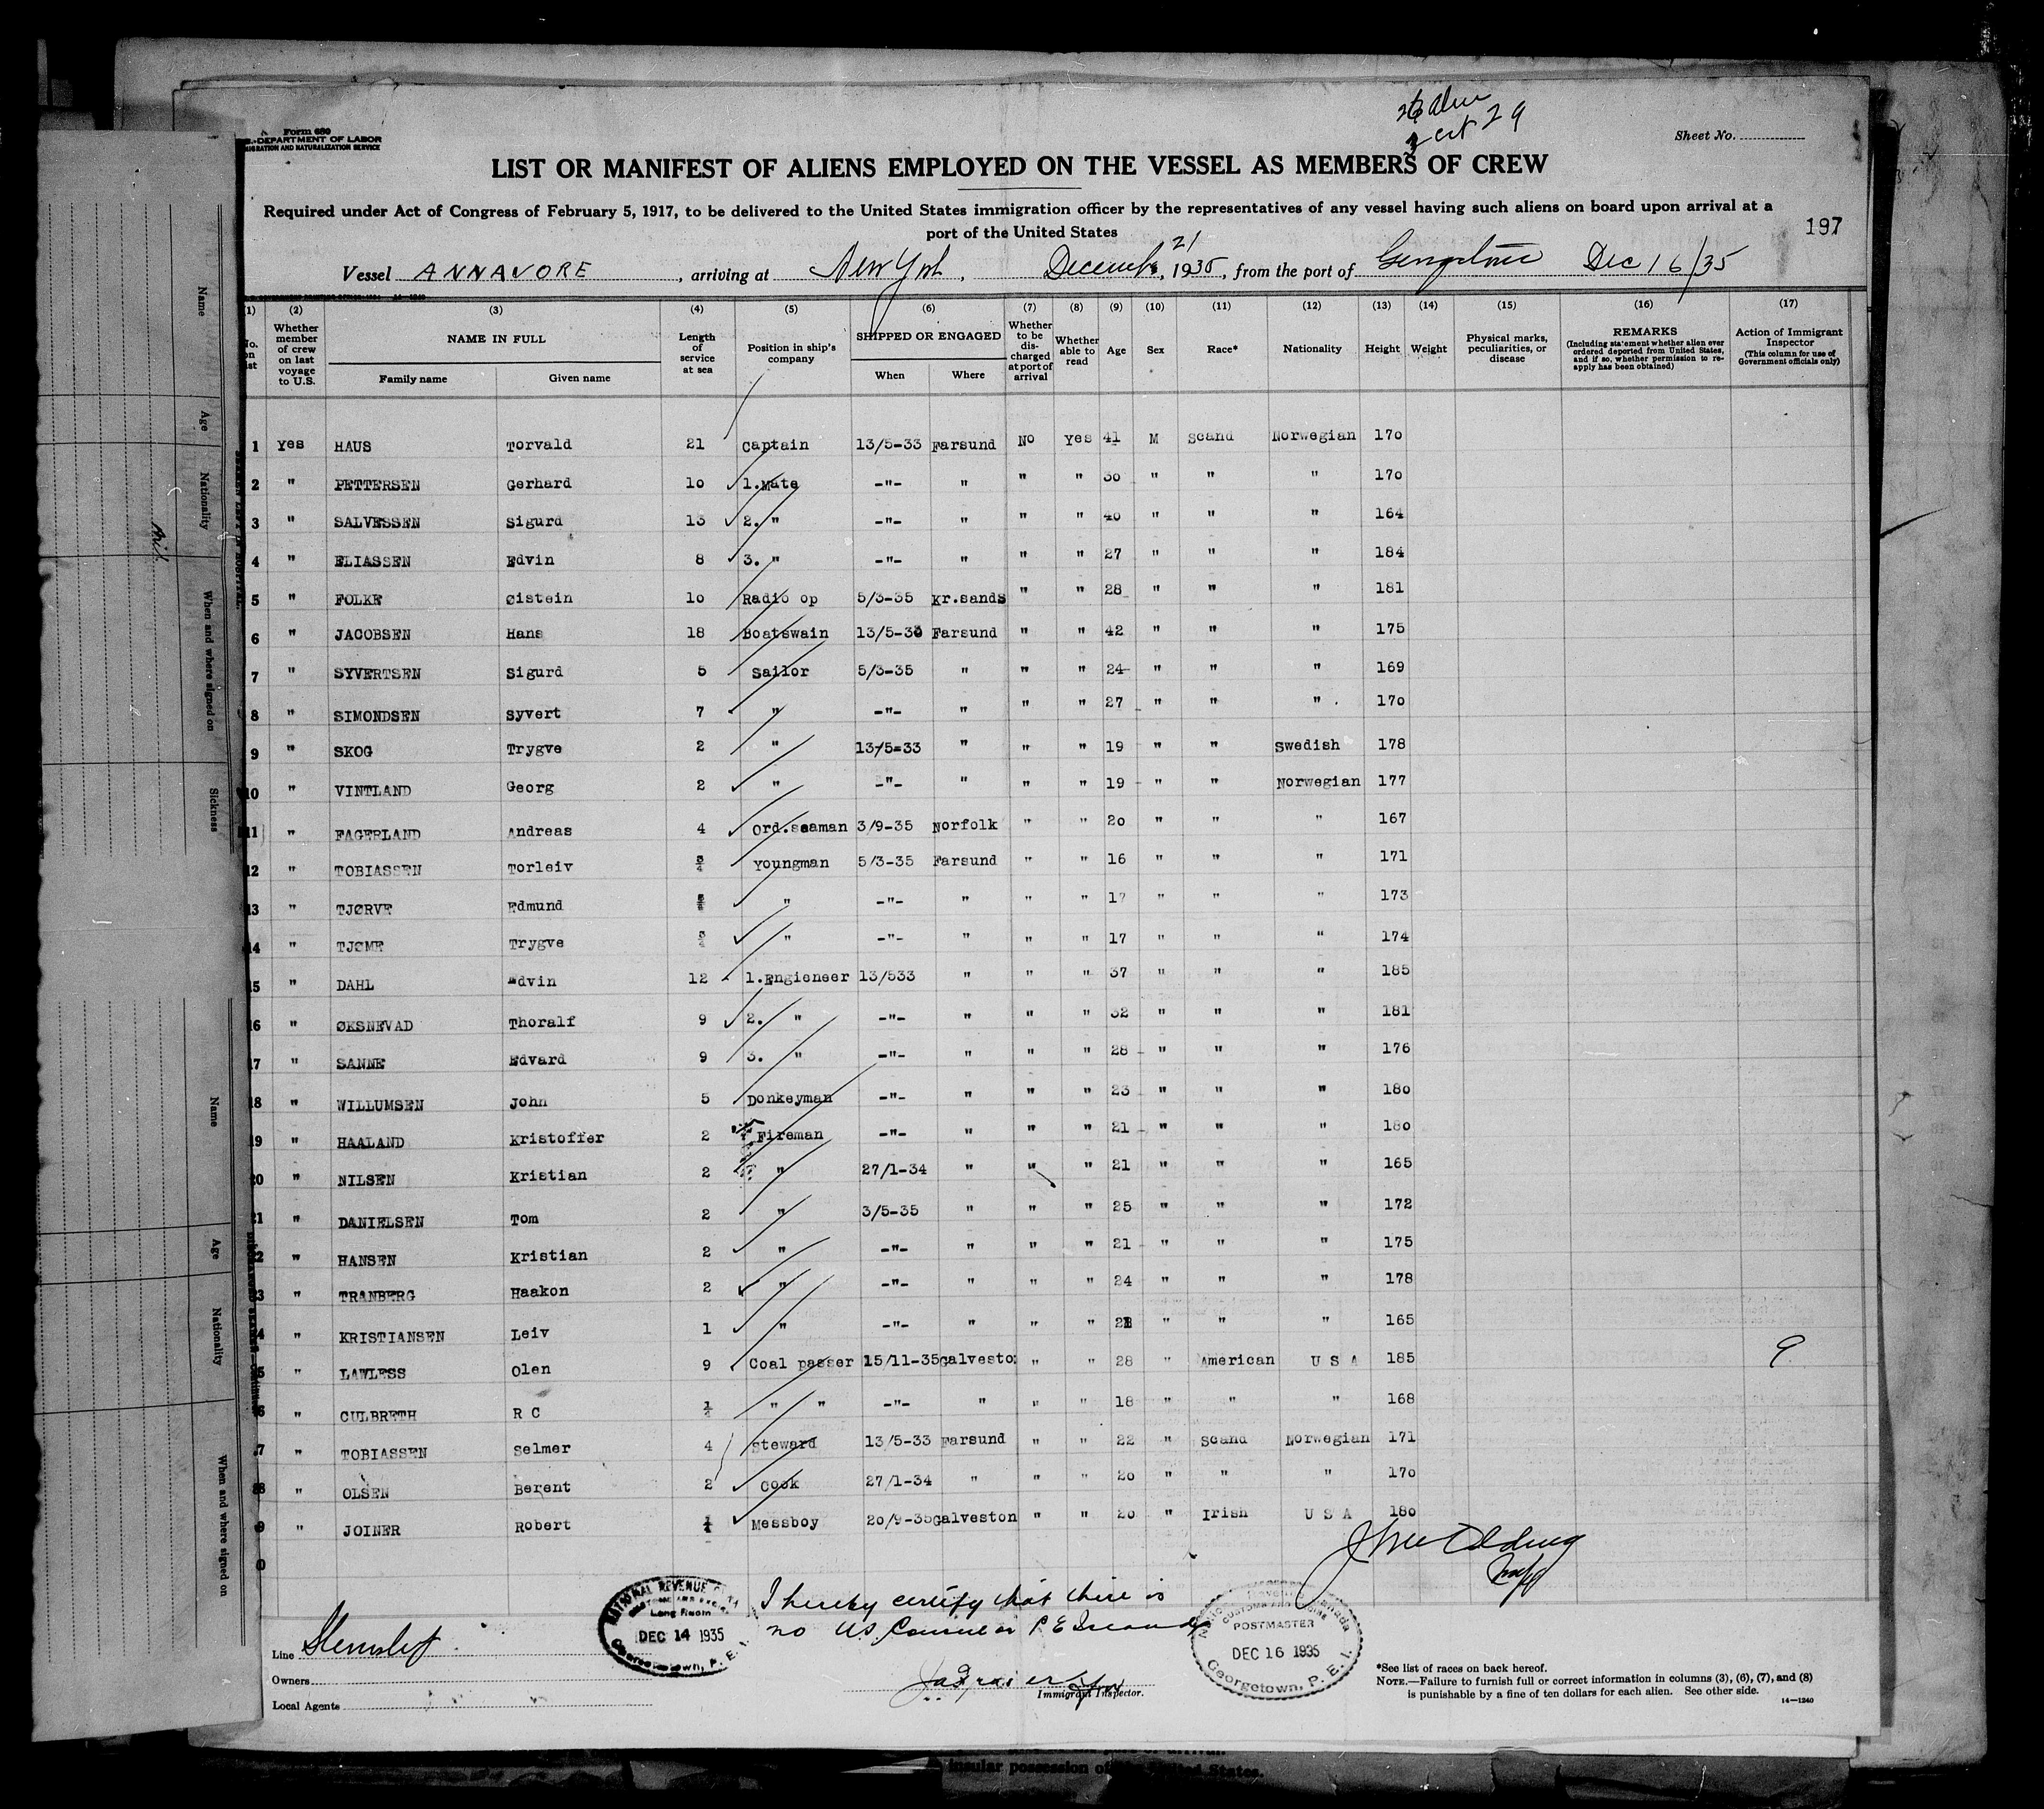 Form 680
DEPARTMENT OF LABOR
IMMIGRATION AND NATURALIZATION SERVICE
29
Sheet No.
LIST OR MANIFEST OF ALIENS EMPLOYED ON THE VESSEL AS MEMBERS OF CREW
Required under Act of Congress of February 5, 1917, to be delivered to the United States immigration officer by the representatives of any vessel having such aliens on board upon arrival at a
port of the United States
197
Vessel ANNAVORE, arriving at New York, December 21, 1935, from the port of Georgetown Dec 16/35
(1) (2) (3) (4) (5) (6) (7) (8) (9) (10) (11) (12) (13) (14) (15) (16) (17)
No. on list
Whether member of crew on last voyage to U.S.
NAME IN FULL
Family name Given name
Length of service at sea
Position in ship's company
SHIPPED OR ENGAGED
When Where
Whether to be discharged at port of arrival
Whether able to read
Age Sex Race* Nationality Height Weight
Physical marks, peculiarities, or disease
REMARKS
(Including statement whether alien ever ordered deported from United States, and if so, whether permission to re-apply has been obtained)
Action of Immigrant Inspector
(This column for use of Government officials only)
1 Yes HAUS Torvald 21 Captain 13/5-33 Farsund No Yes 41 M Scand Norwegian 170
2 " PETTERSEN Gerhard 10 1.Mate -"- " " " 30 " " " 170
3 " SALVESSEN Sigurd 13 2. " -"- " " " 40 " " " 164
4 " ELIASSEN Edvin 8 3. " -"- " " " 27 " " " 184
5 " FOLKE Øistein 10 Radio op 5/3-35 Kr.sands " " 28 " " " 181
6 " JACOBSEN Hans 18 Boatswain 13/5-33 Farsund " " 42 " " " 175
7 " SYVERTSEN Sigurd 5 Sailor 5/3-35 " " " 24 " " " 169
8 " SIMONDSEN Syvert 7 " -"- " " " 27 " " " 170
9 " SKOG Trygve 2 " 13/5-33 " " " 19 " " Swedish 178
10 " VINTLAND Georg 2 " -"- " " " 19 " " Norwegian 177
11 " FAGERLAND Andreas 4 Ord.seaman 3/9-35 Norfolk " " 20 " " " 167
12 " TOBIASSEN Torleiv 3/4 Youngman 5/3-35 Farsund " " 16 " " " 171
13 " TJØRVE Edmund " -"- " " " 17 " " " 173
14 " TJØME Trygve 3/4 " -"- " " " 17 " " " 174
15 " DAHL Edvin 12 1.Engieneer 13/533 " " " 37 " " " 185
16 " ØKSNEVAD Thoralf 9 2. " -"- " " " 32 " " " 181
17 " SANNE Edvard 9 3. " -"- " " " 28 " " " 176
18 " WILLUMSEN John 5 Donkeyman -"- " " " 23 " " " 180
19 " HAALAND Kristoffer 2 Fireman -"- " " " 21 " " " 180
20 " NILSEN Kristian 2 " 27/1-34 " " " 21 " " " 165
21 " DANIELSEN Tom 2 " 3/5-35 " " " 25 " " " 172
22 " HANSEN Kristian 2 " -"- " " " 21 " " " 175
23 " TRANBERG Haakon 2 " -"- " " " 24 " " " 178
24 " KRISTIANSEN Leiv 1 " -"- " " " " " " 165
25 " LAWLESS Olen 9 Coal passer 15/11-35 Galveston " " 28 " American U S A 185 9
26 " CULBRETH R C 1/4 " " -"- " " " 18 " " " 168
27 " TOBIASSEN Selmer 4 Steward 13/5-33 Farsund " " 22 " Scand Norwegian 171
28 " OLSEN Berent 2 Cook 27/1-34 " " " 20 " " " 170
29 " JOINER Robert 1/4 Messboy 20/9-35 Galveston " " 20 " Irish U S A 180
0
I hereby certify that there is
no U.S. Consul in P E Island
NATIONAL REVENUE
DEC 14 1935
Georgetown, P. E. I.
POSTMASTER
DEC 16 1935
Georgetown, P. E. I.
Line
Owners
Local Agents
Immigrant Inspector.
*See list of races on back hereof.
NOTE.—Failure to furnish full or correct information in columns (3), (6), (7), and (8)
is punishable by a fine of ten dollars for each alien. See other side.
14—1240
Name
Age
Nationality
Nil
When and where signed on
Sickness
Name
Age
Nationality
When and where signed on
insular possession of the United States.